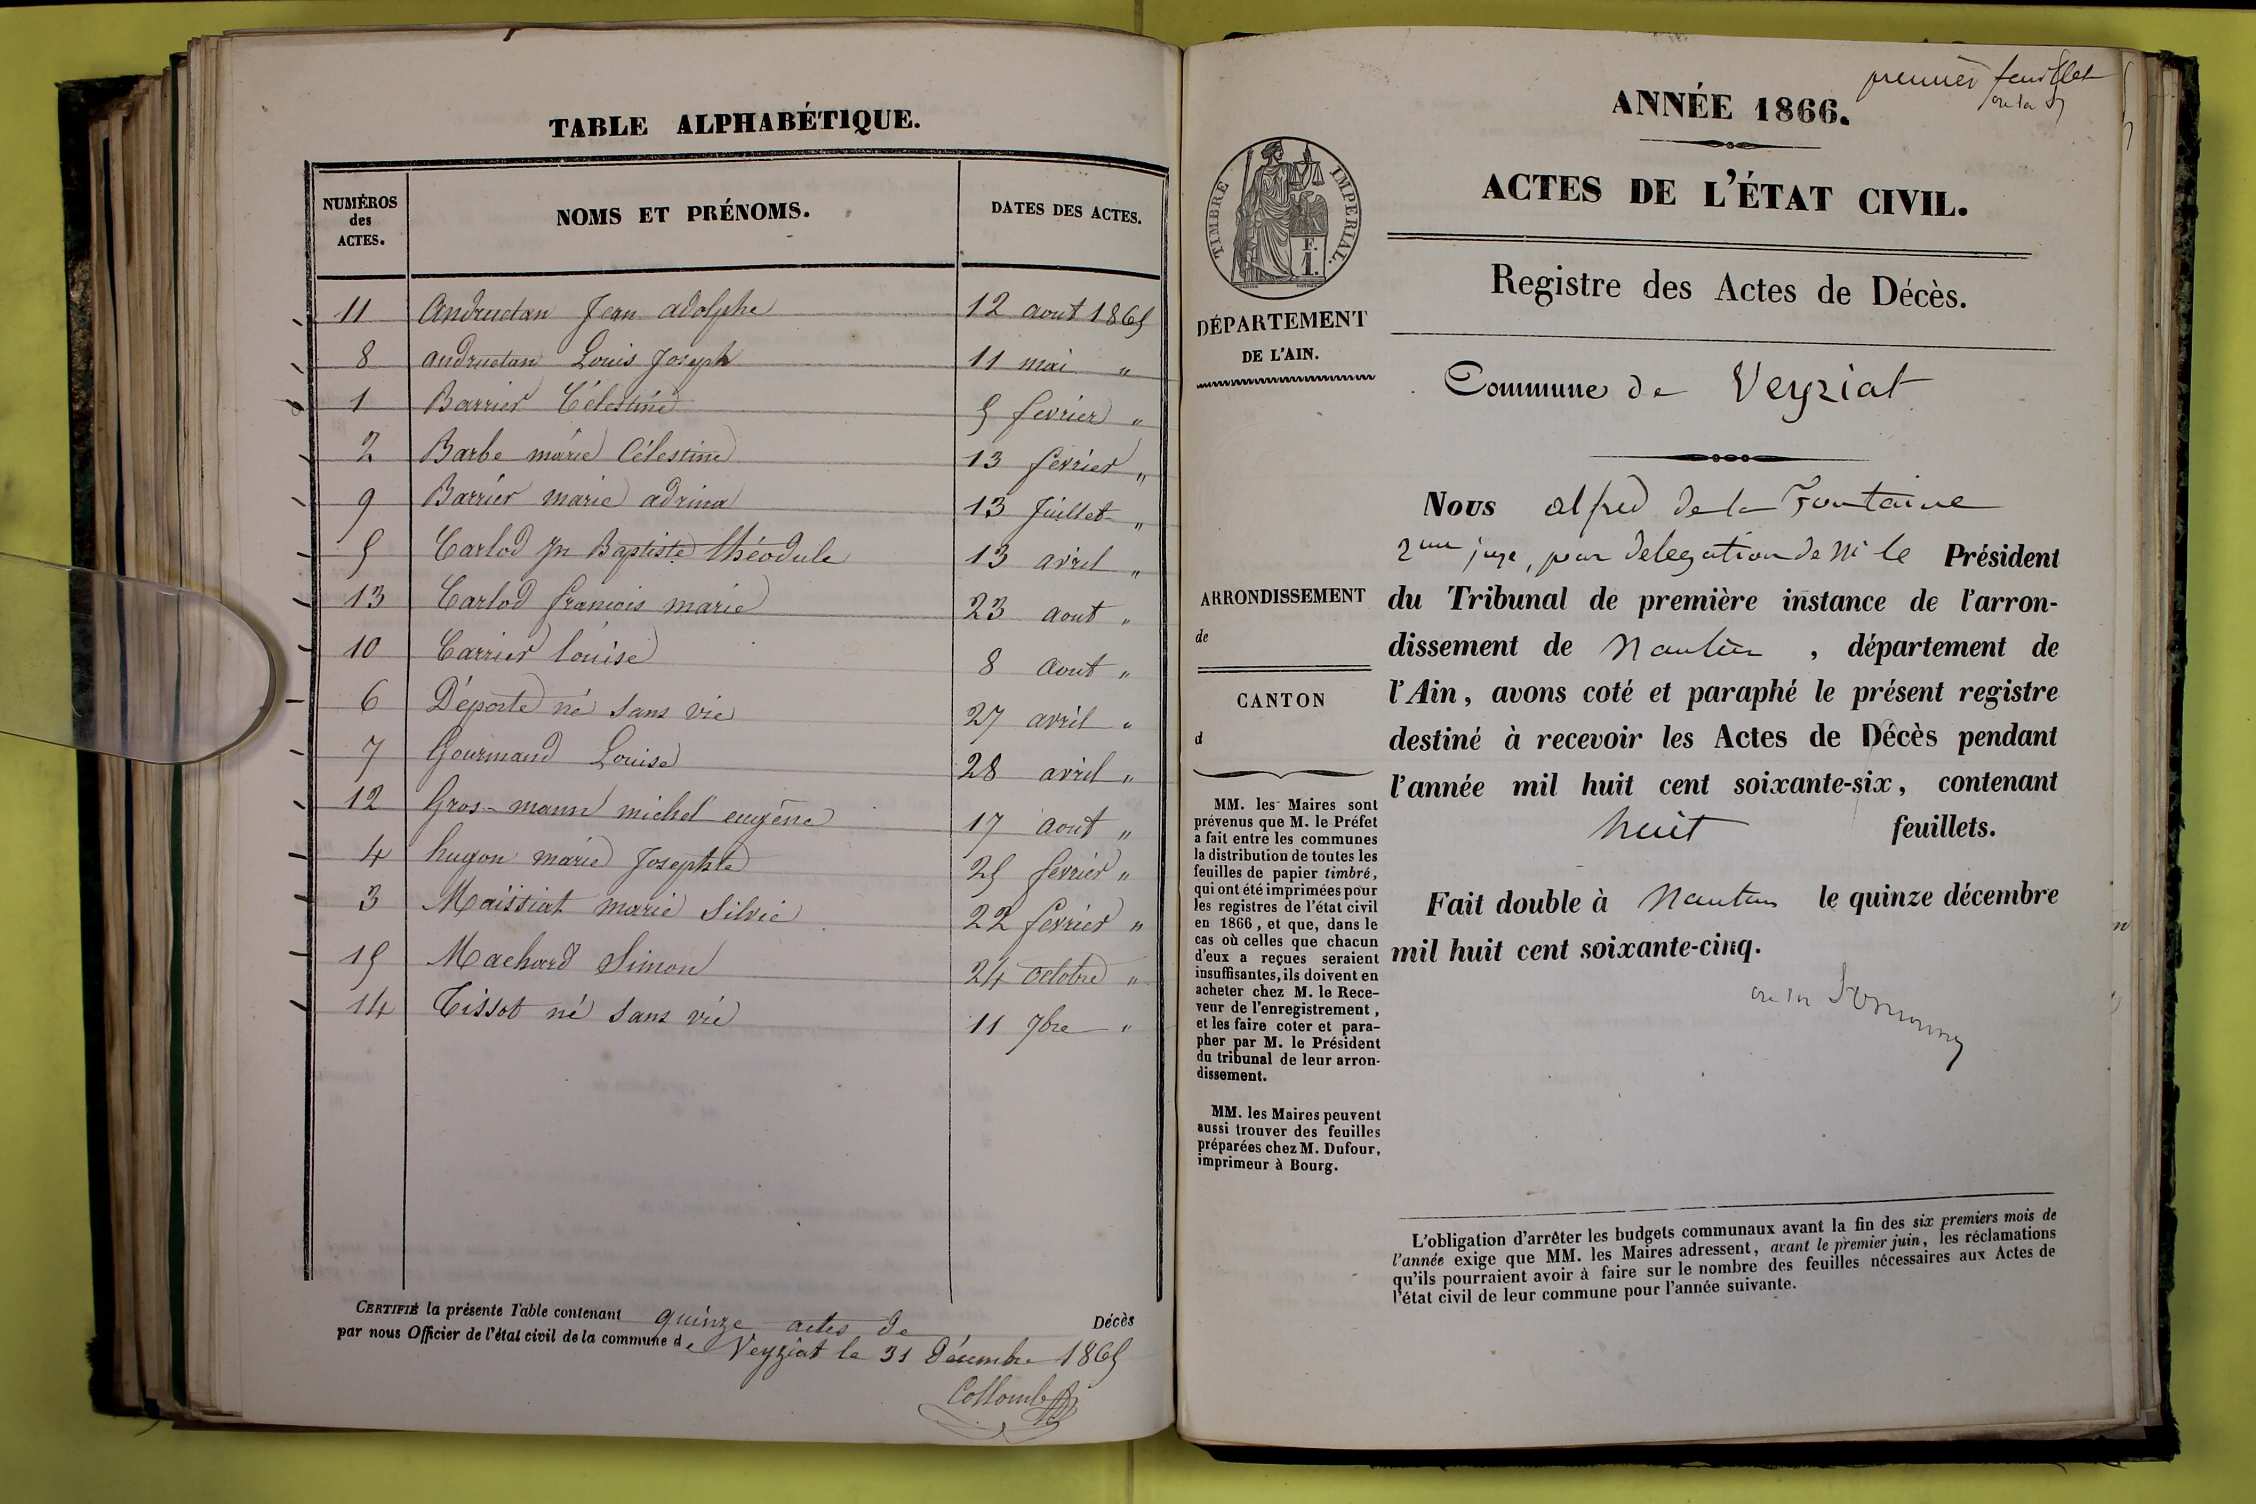 TABLE ALPHABÉTIQUE.
NUMÉROS des ACTES. NOMS ET PRÉNOMS. DATES DES ACTES.
11 Andruetan Jean adolphe 12 aout 1865
8 andruetan Louis Joseph 11 mai "
1 Barrier Célestine 5 fevrier "
2 Barbe marie Célestine 13 fevrier "
9 Barrier marie adrina 13 Juillet "
5 Carlod Jn Baptiste théodule 13 avril "
13 Carlod francois marie 23 aout "
10 Carrier louise 8 aout "
6 Déporte né sans vie 27 avril "
7 Gourmand Louise 28 avril "
12 Gros-mann michel eugène 17 aout "
4 hugon marie Josephte 25 fevrier "
3 Maissiat marie Silvie 22 fevrier "
15 Machard Simon 24 octobre "
14 Tissot né sans vie 11 7bre "
CERTIFIÉ la présente Table contenant quinze actes de Décès
par nous Officier de l'état civil de la commune de Veyziat le 31 Décembre 1865
Collomb
premier feuillet
ANNÉE 1866.
ACTES DE L'ÉTAT CIVIL.
TIMBRE IMPERIAL.
F.
1.
Registre des Actes de Décès.
DÉPARTEMENT
DE L'AIN.
Commune de Veyziat
Nous alfred de la Fontaine
2me juge, par delegation de Mr le Président
ARRONDISSEMENT
de
du Tribunal de première instance de l'arron-
dissement de Nantua , département de
l'Ain, avons coté et paraphé le présent registre
CANTON
d
destiné à recevoir les Actes de Décès pendant
l'année mil huit cent soixante-six, contenant
huit feuillets.
Fait double à Nantua le quinze décembre
mil huit cent soixante-cinq.
MM. les Maires sont
prévenus que M. le Préfet
a fait entre les communes
la distribution de toutes les
feuilles de papier timbré,
qui ont été imprimées pour
les registres de l'état civil
en 1866, et que, dans le
cas où celles que chacun
d'eux a reçues seraient
insuffisantes, ils doivent en
acheter chez M. le Rece-
veur de l'enregistrement,
et les faire coter et para-
pher par M. le Président
du tribunal de leur arron-
dissement.
MM. les Maires peuvent
aussi trouver des feuilles
préparées chez M. Dufour,
imprimeur à Bourg.
L'obligation d'arrêter les budgets communaux avant la fin des six premiers mois de
l'année exige que MM. les Maires adressent, avant le premier juin, les réclamations
qu'ils pourraient avoir à faire sur le nombre des feuilles nécessaires aux Actes de
l'état civil de leur commune pour l'année suivante.